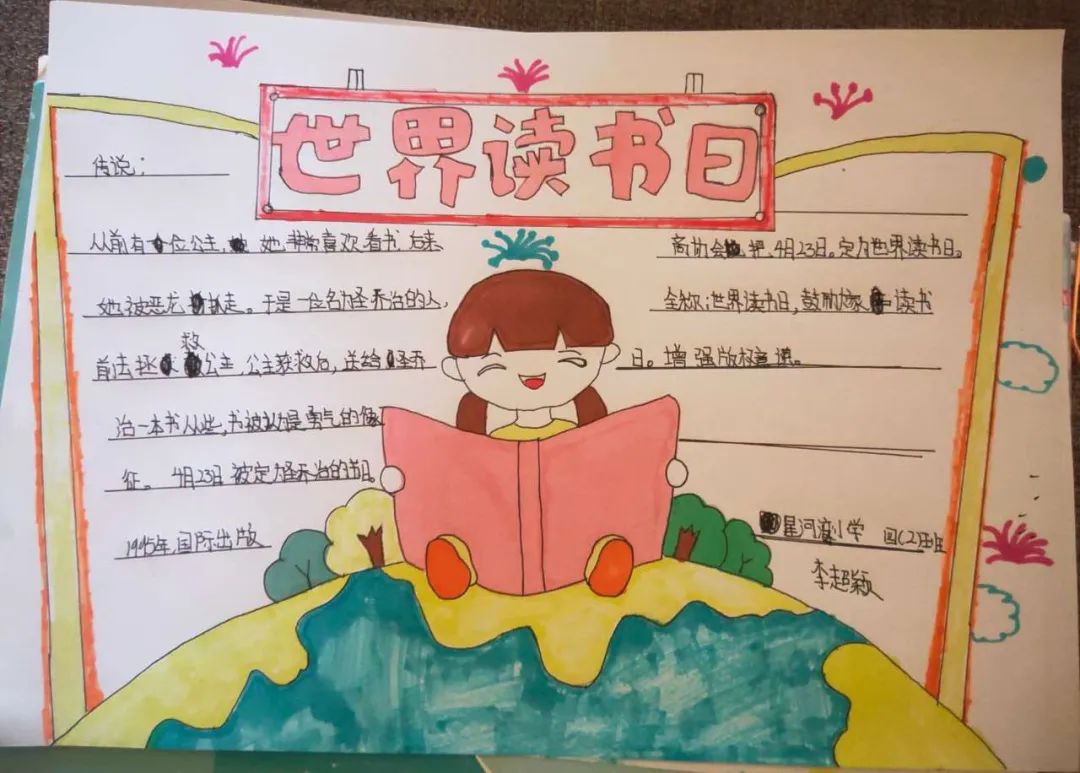 世界读书日
传说：
从前有位公主，她非常喜欢看书，后来
她被恶龙扒走。于是一位名为圣乔治的人，
前去拯救公主，公主获救后，送给圣乔
治一本书从些，书被认为是勇气的像
征。4月23日被定为圣乔治的节日。
1995年，国际出版
商协会把，4月23日。定为世界读书日。
全称：世界读书日，鼓励大家读书
日。增强版权意识。
星河湾小学 四(2)班
李超颖